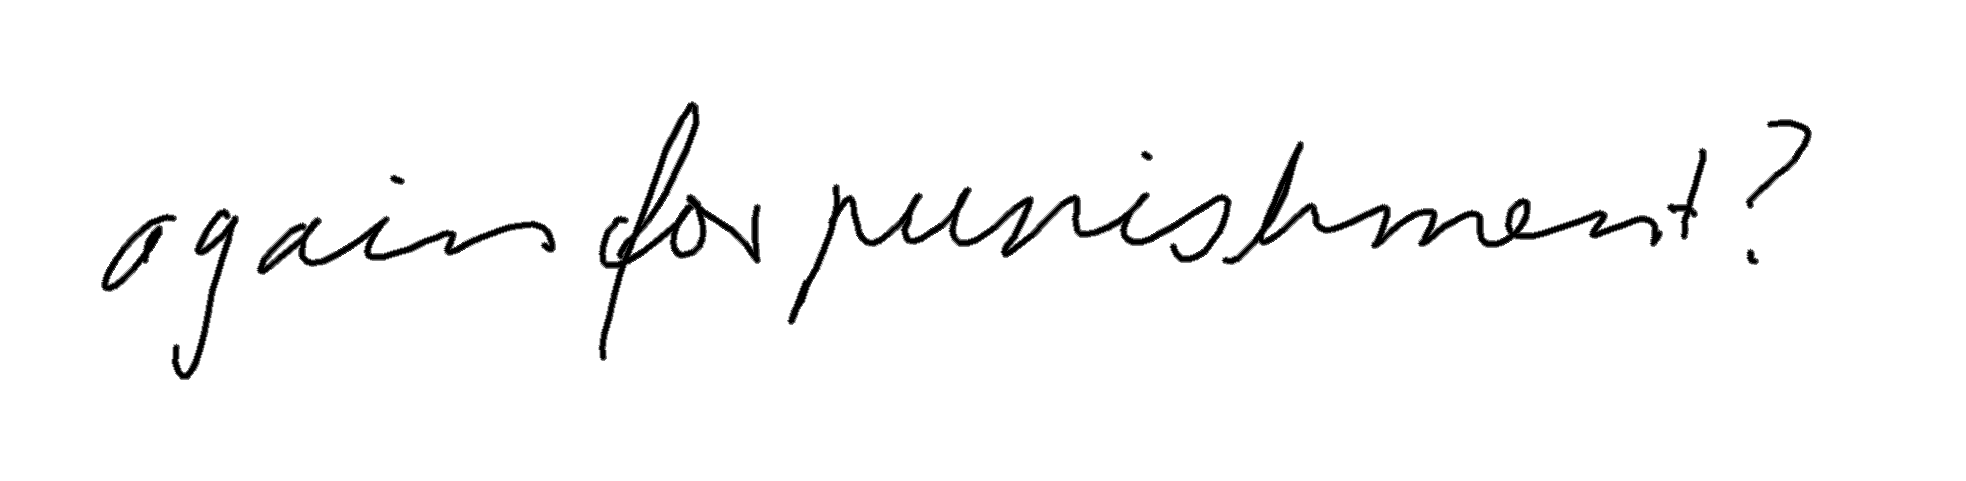 again for punishment?